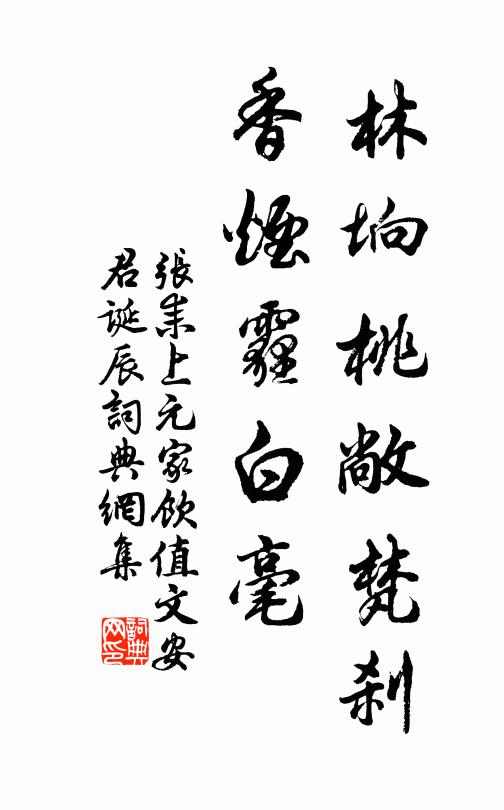 林坰桃敞梵刹
香煙霾白毫
張耒上元家飲值文安
君誕辰詞典網集
詞典
网印